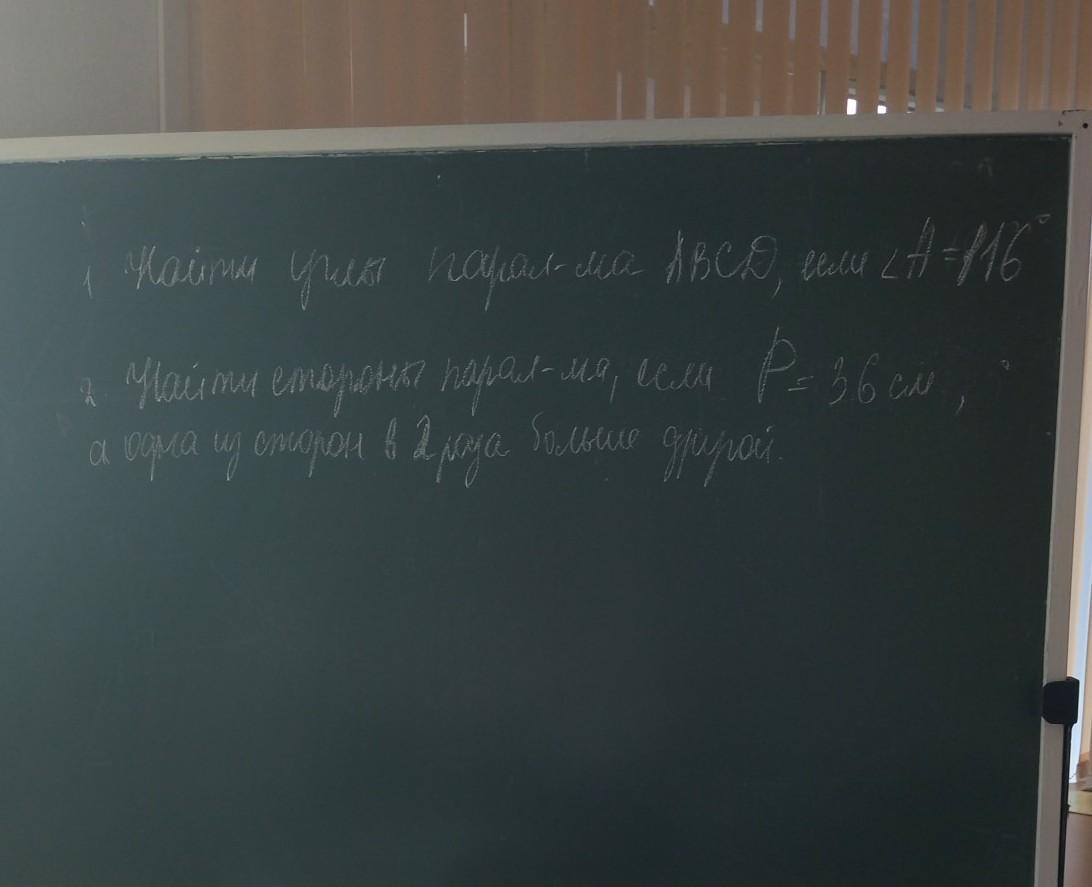 1 Найти углы парал-ма ABCD, если ∠A=116°
2 Найти стороны парал-ма, если P=36 см,
а одна из сторон в 2 раза больше другой.